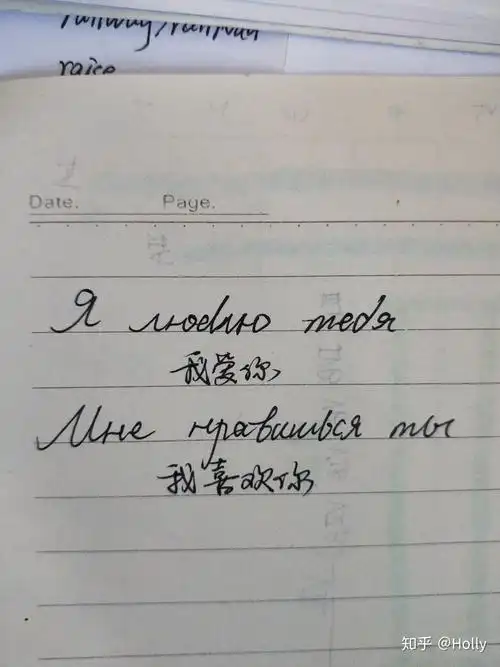 railway/railroad
raise
Date. Page.
Я люблю тебя
我爱你
Мне нравишься ты
我喜欢你
知乎 @Holly